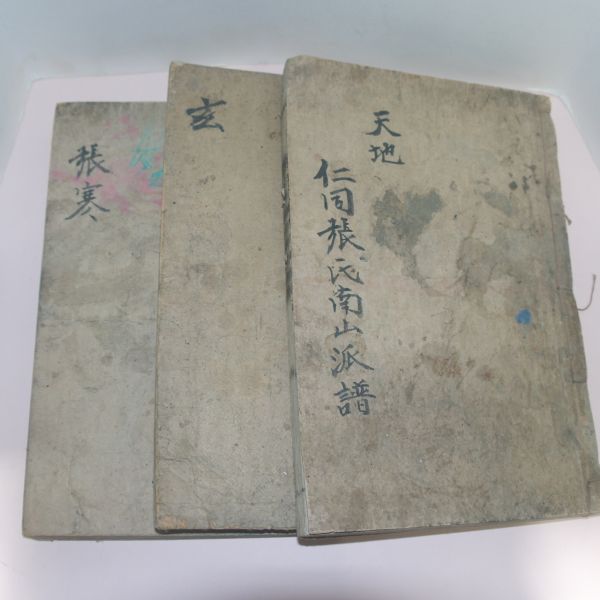 天地
仁同張氏南山派譜
玄
張寒